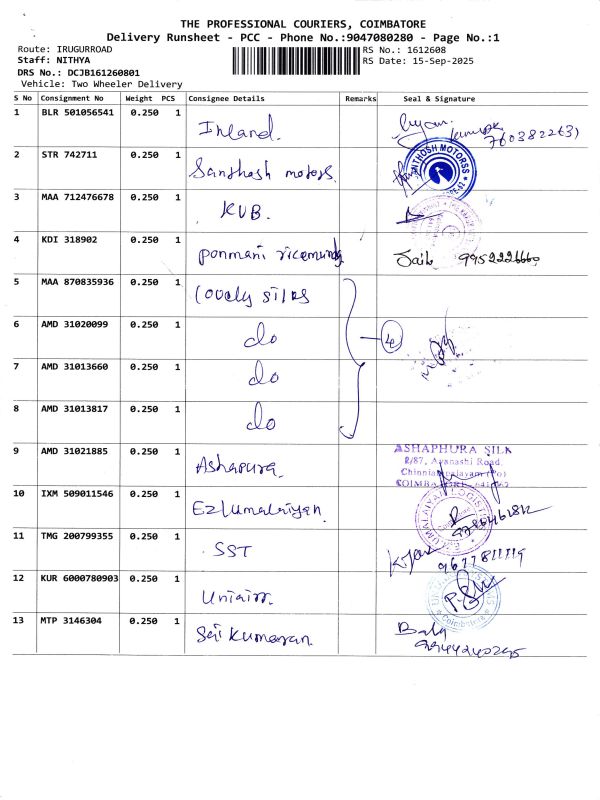 THE PROFESSIONAL COURIERS, COIMBATORE
Delivery Runsheet - PCC - Phone No.:9047080280 - Page No.:1
Route: IRUGURROAD
RS No.: 1612608
Staff: NITHYA
RS Date: 15-Sep-2025
DRS No.: DCJB161260801
Vehicle: Two Wheeler Delivery
S No Consignment No Weight PCS Consignee Details Remarks Seal & Signature
1 BLR 501056541 0.250 1 Inland.
2 STR 742711 0.250 1 Santhosh motors
3 MAA 712476678 0.250 1 KVB.
4 KDI 318902 0.250 1 ponmani ricemundy
5 MAA 870835936 0.250 1 Lovely silks
6 AMD 31020099 0.250 1 do
7 AMD 31013660 0.250 1 do
8 AMD 31013817 0.250 1 do
9 AMD 31021885 0.250 1 Ashapura. ASHAPHURA SILK
Avanashi Road
10 IXM 509011546 0.250 1 Ezhumalaiyan
11 TMG 200799355 0.250 1 SST 9677811119
12 KUR 6000780903 0.250 1
Coimbatore
13 MTP 3146304 0.250 1 Sri Kumaran. Bala
9944240295